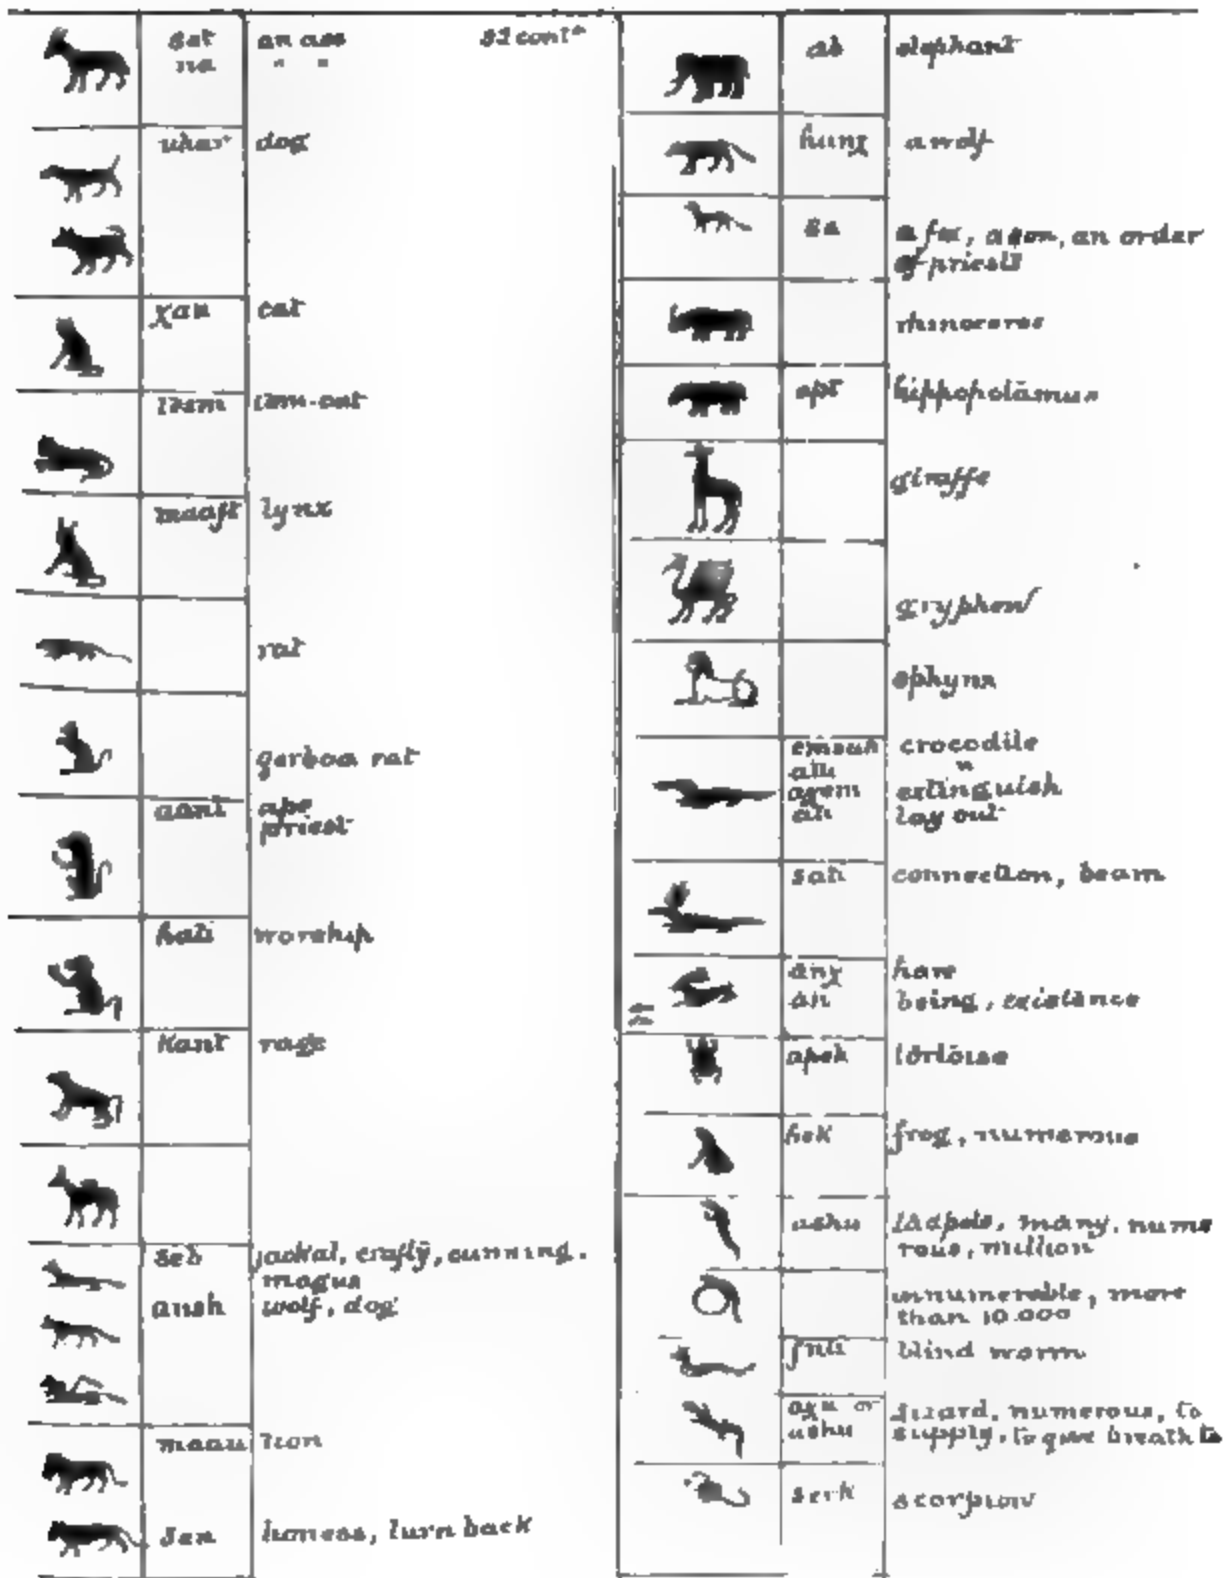 set an ass 52 cont^d
na " "
uhar dog
χau cat
tsem tom-cat
maaft lynx
rat
gerboa rat
aani ape
priest
hati worship
Kant rage
seb jackal, crafty, cunning.
magus
aush wolf, dog
maau lion
sen lioness, turn back
ab elephant
hunχ a wolf
sa a fox, a son, an order
of priests
rhinoceros
apt hippopotamus
giraffe
gryphon
sphynx
emsuh crocodile
atu "
aχem extinguish
at lay out
sah connection, beam
anχ hare
an being, existence
apsh tortoise
hek frog, numerous
ashu tadpole, many, nume
rous, million
innumerable, more
than 10.000
fnti blind worm
aχu or lizard, numerous, to
ashu supply, to give breath to
serk scorpion